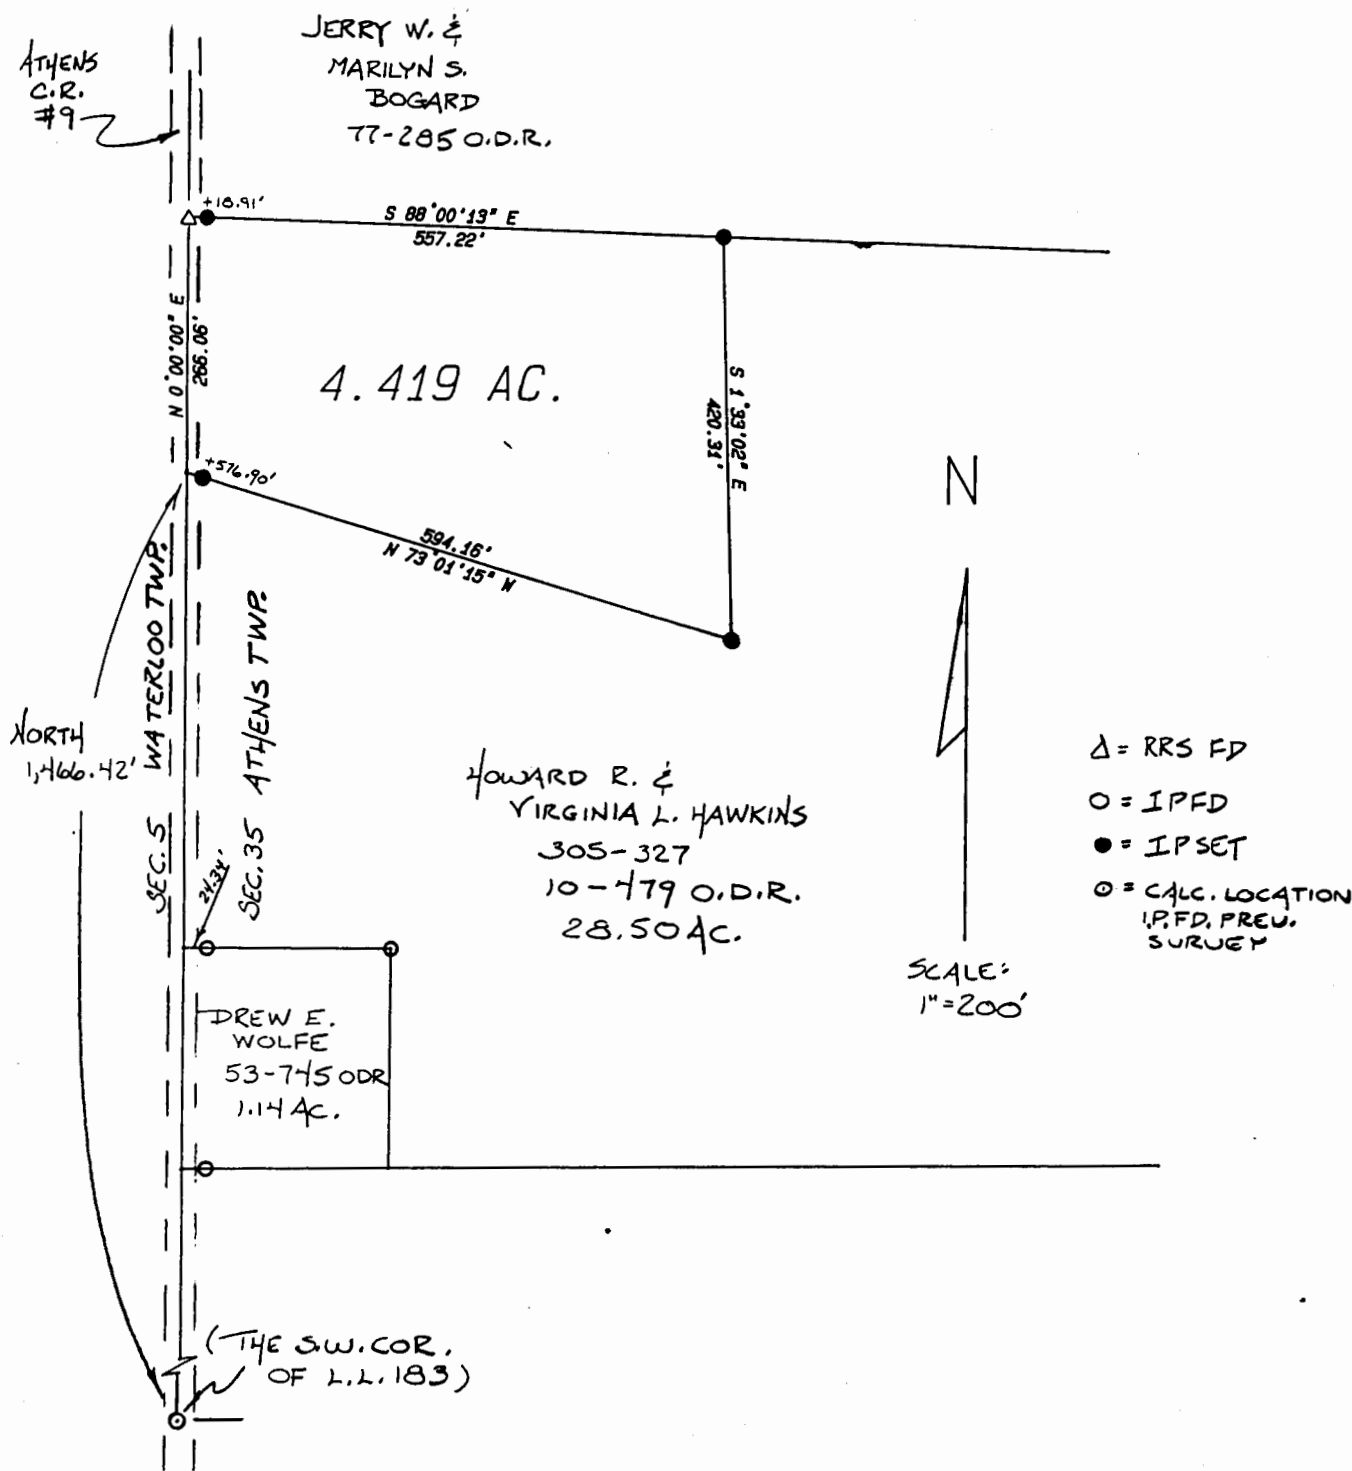 JERRY W. &
MARILYN S.
BOGARD
77-285 O.D.R.
ATHENS
C.R.
#9
+18.91'
S 88°00'13" E
557.22'
N 0°00'00" E
266.06'
4.419 AC.
S 1°33'02" E
420.31'
+576.90'
594.16'
N 73°01'15" W
N
WATERLOO TWP.
SEC. 5
ATHENS TWP.
SEC. 35
NORTH
1,466.42'
24.34'
HOWARD R. &
VIRGINIA L. HAWKINS
305-327
10-479 O.D.R.
28.50 AC.
Δ = RRS FD
O = IPFD
● = IPSET
⊙ = CALC. LOCATION
I.P. FD. PREV.
SURVEY
SCALE:
1"=200'
DREW E.
WOLFE
53-745 ODR
1.14 AC.
(THE S.W. COR.
OF L.L. 183)